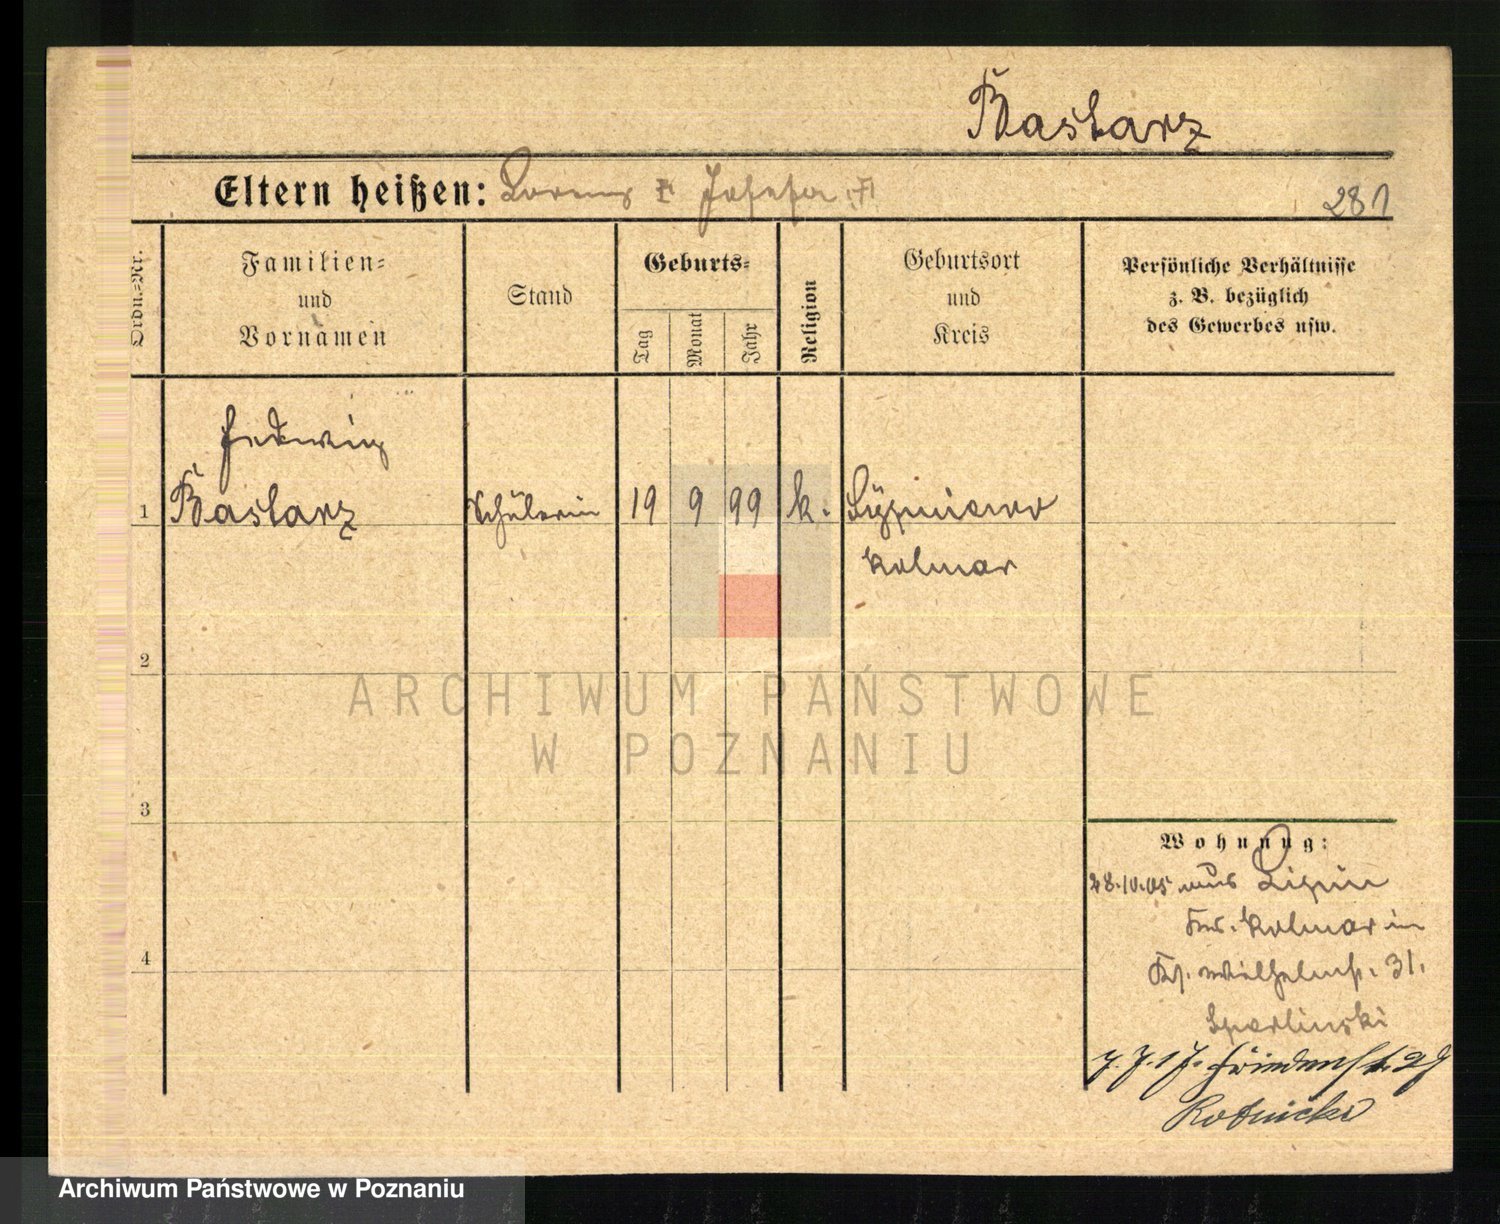 Bastarz
Eltern heißen: Lorenz † Josefa †
281
Ordn.-Nr.
Familien-
und
Vornamen
Stand
Geburts-
Tag
Monat
Jahr
Religion
Geburtsort
und
Kreis
Persönliche Verhältnisse
z. B. bezüglich
des Gewerbes usw.
Hedwig
1 Bastarz Schülerin 19 9 99 k.
Kolmar
2
ARCHIWUM PAŃSTWOWE
W POZNANIU
3
Wohnung:
28.10.05 aus Lipin
Krs. Kolmar in
Wilhelmstr. 31.
4
Archiwum Państwowe w Poznaniu